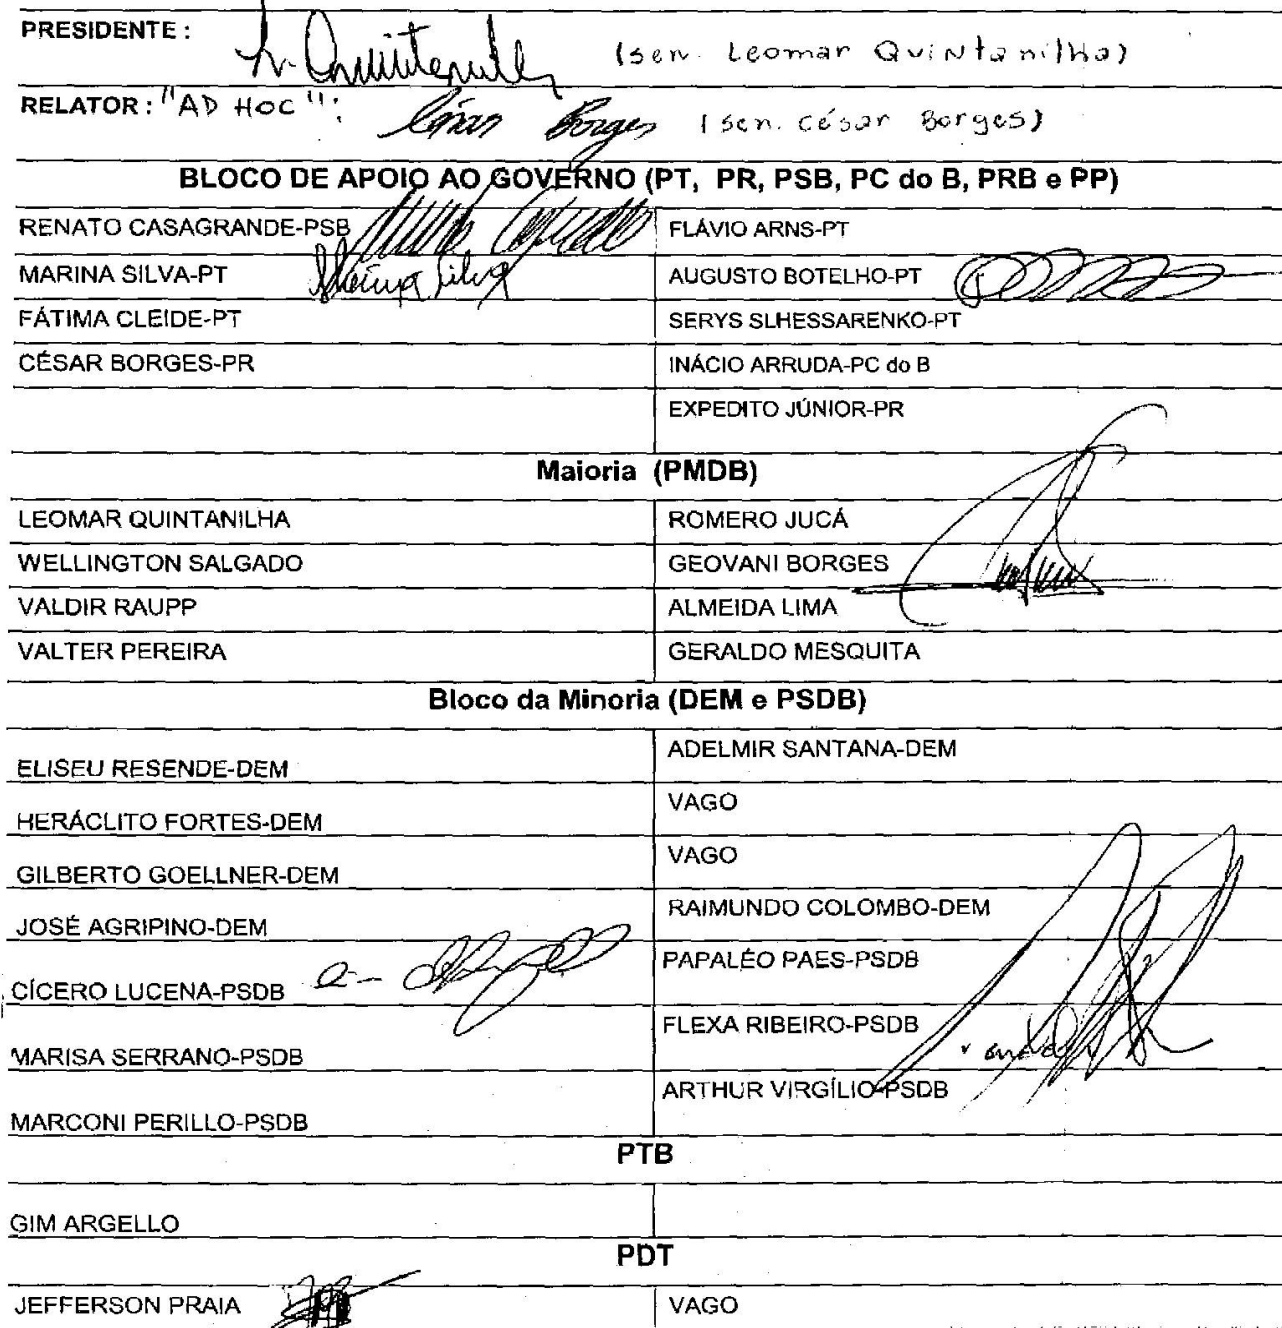 PRESIDENTE: (sen. Leomar Quintanilha)
RELATOR: "AD HOC": César Borges (sen. César Borges)
BLOCO DE APOIO AO GOVERNO (PT, PR, PSB, PC do B, PRB e PP)
RENATO CASAGRANDE-PSB FLÁVIO ARNS-PT
MARINA SILVA-PT Marina Silva AUGUSTO BOTELHO-PT
FÁTIMA CLEIDE-PT SERYS SLHESSARENKO-PT
CÉSAR BORGES-PR INÁCIO ARRUDA-PC do B
EXPEDITO JÚNIOR-PR
Maioria (PMDB)
LEOMAR QUINTANILHA ROMERO JUCÁ
WELLINGTON SALGADO GEOVANI BORGES
VALDIR RAUPP ALMEIDA LIMA
VALTER PEREIRA GERALDO MESQUITA
Bloco da Minoria (DEM e PSDB)
ELISEU RESENDE-DEM ADELMIR SANTANA-DEM
HERÁCLITO FORTES-DEM VAGO
GILBERTO GOELLNER-DEM VAGO
JOSÉ AGRIPINO-DEM RAIMUNDO COLOMBO-DEM
CÍCERO LUCENA-PSDB PAPALÉO PAES-PSDB
MARISA SERRANO-PSDB FLEXA RIBEIRO-PSDB
MARCONI PERILLO-PSDB ARTHUR VIRGÍLIO-PSDB
PTB
GIM ARGELLO
PDT
JEFFERSON PRAIA VAGO